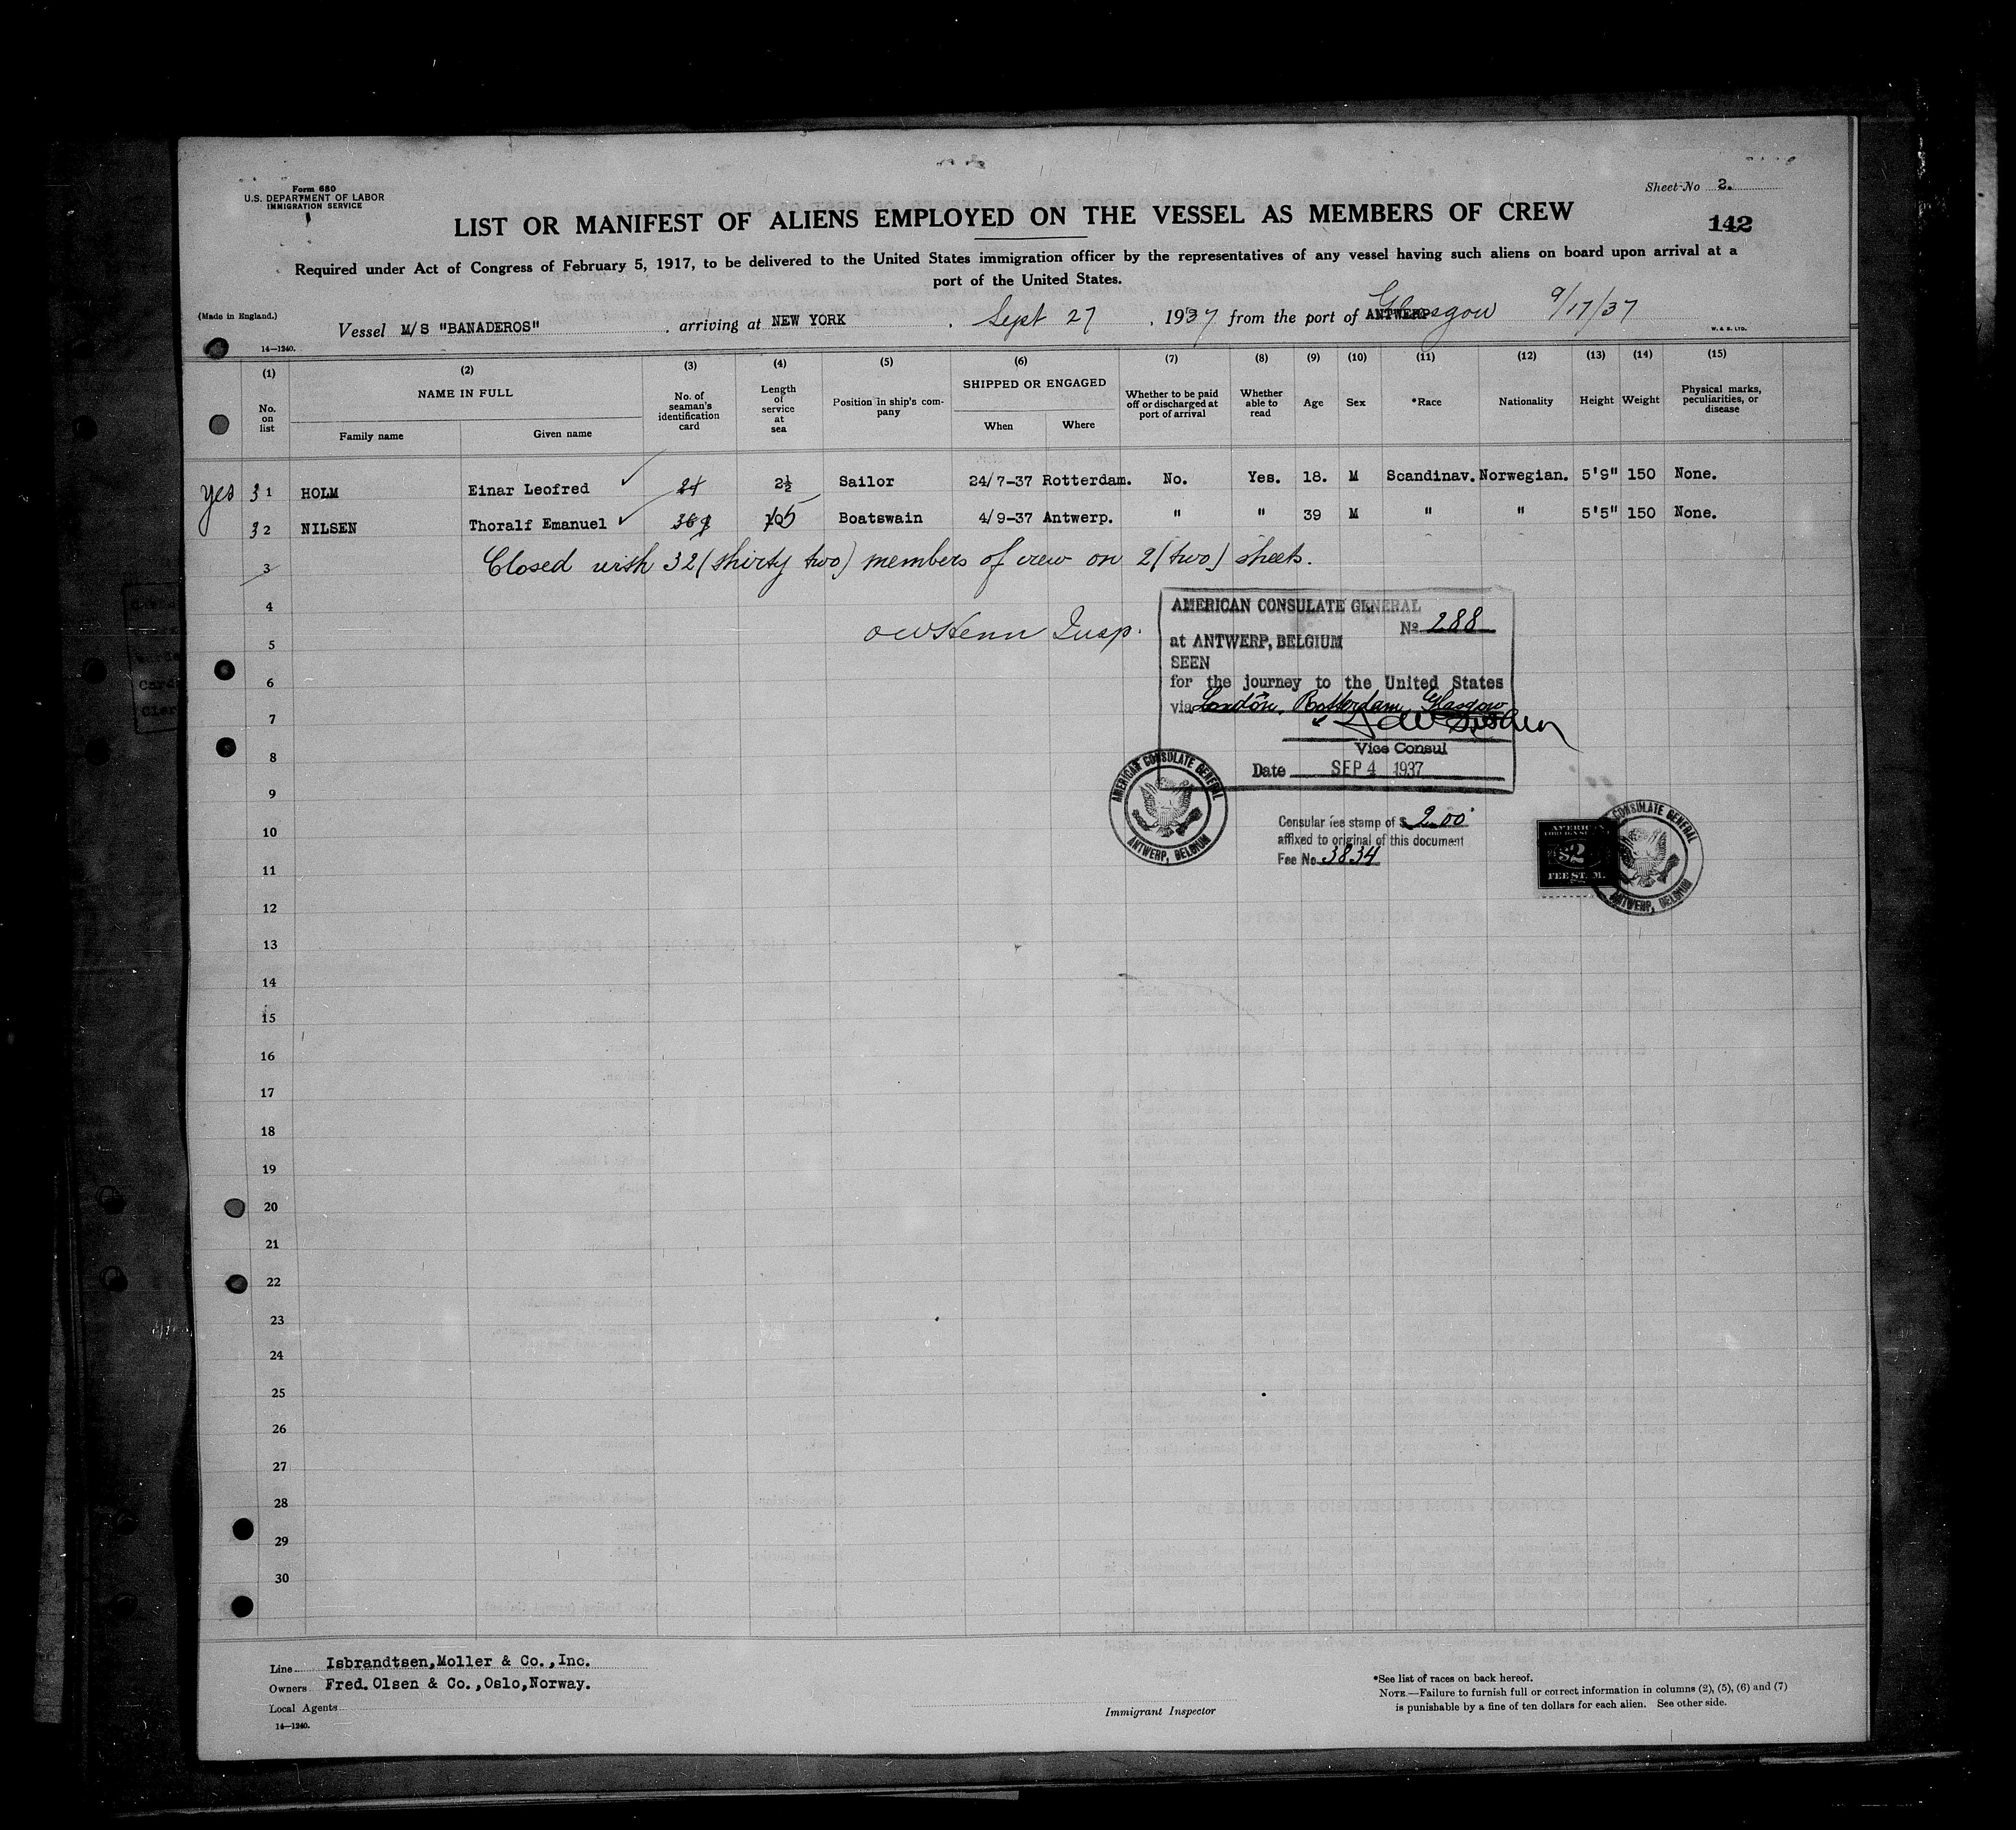 Form 680
U.S. DEPARTMENT OF LABOR
IMMIGRATION SERVICE
Sheet No 2.
LIST OR MANIFEST OF ALIENS EMPLOYED ON THE VESSEL AS MEMBERS OF CREW
142
Required under Act of Congress of February 5, 1917, to be delivered to the United States immigration officer by the representatives of any vessel having such aliens on board upon arrival at a
port of the United States.
(Made in England.)
Vessel M/S "BANADEROS" arriving at NEW YORK, Sept 27, 1937 from the port of ANTWERP Glasgow 9/17/37
W. & S. LTD.
14—1240.
(1) (2) (3) (4) (5) (6) (7) (8) (9) (10) (11) (12) (13) (14) (15)
No. on list
NAME IN FULL
Family name
Given name
No. of seaman's identification card
Length of service at sea
Position in ship's company
SHIPPED OR ENGAGED
When
Where
Whether to be paid off or discharged at port of arrival
Whether able to read
Age
Sex
*Race
Nationality
Height
Weight
Physical marks, peculiarities, or disease
yes 31 HOLM Einar Leofred 2½ Sailor 24/7-37 Rotterdam. No. Yes. 18. M Scandinav. Norwegian. 5'9" 150 None.
32 NILSEN Thoralf Emanuel Boatswain 4/9-37 Antwerp. " " 39 M " " 5'5" 150 None.
3 Closed with 32 (thirty two) members of crew on 2 (two) sheets.
4
5
6
7
8
9
10
11
12
13
14
15
16
17
18
19
20
21
22
23
24
25
26
27
28
29
30
Insp.
AMERICAN CONSULATE GENERAL
No 288
at ANTWERP, BELGIUM
SEEN
for the journey to the United States
via London, Rotterdam, Glasgow
Vice Consul
Date SEP 4 1937
AMERICAN CONSULATE GENERAL
ANTWERP, BELGIUM
Consular fee stamp of $ 2.00
affixed to original of this document
Fee No 3834
AMERICAN
$2
FEE STAMP
CONSULATE GENERAL
ANTWERP, BELGIUM
Line Isbrandtsen, Moller & Co., Inc.
Owners Fred. Olsen & Co., Oslo, Norway.
Local Agents
14—1240.
Immigrant Inspector
*See list of races on back hereof.
NOTE.—Failure to furnish full or correct information in columns (2), (5), (6) and (7)
is punishable by a fine of ten dollars for each alien. See other side.